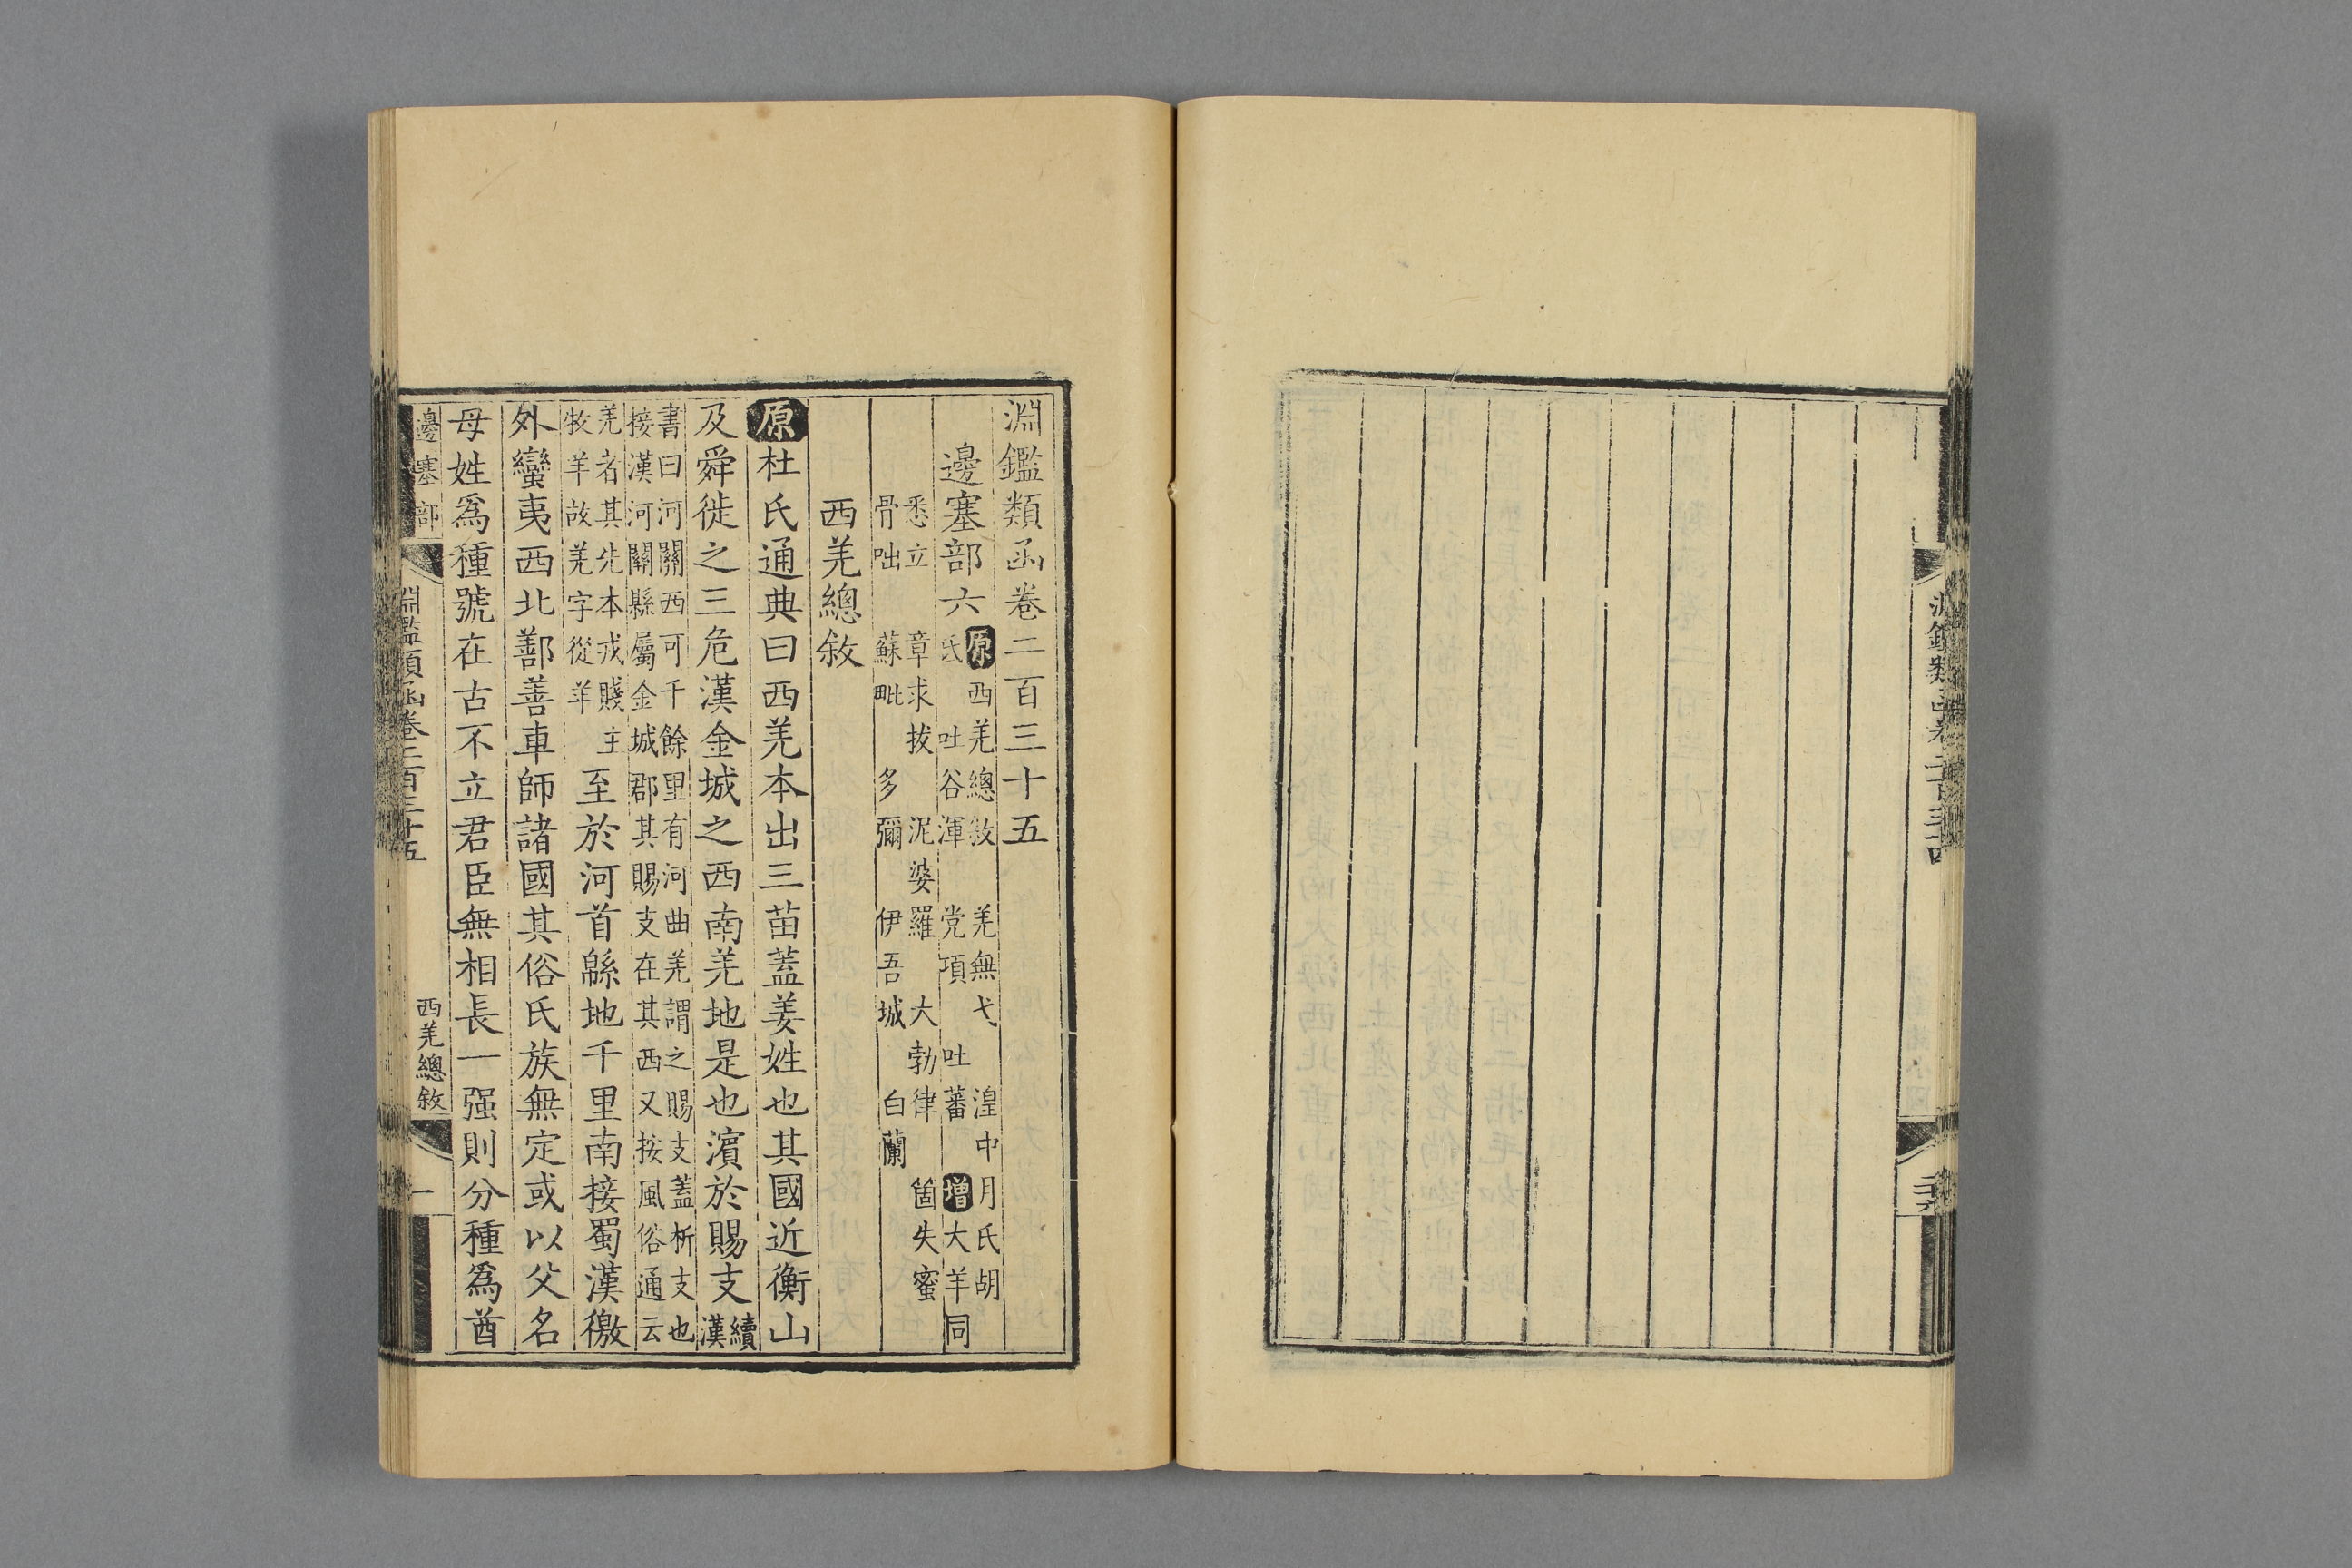 淵鑑類函卷二百三十五
邊塞部六
原西羌總敘 羌無弋 湟中月氏胡
氐 吐谷渾 党項 吐蕃 增大羊同
悉立 章求拔 泥婆羅 大勃律 箇失蜜
骨咄 蘇毗 多彌 伊吾城 白蘭
西羌總敘
原杜氏通典曰西羌本出三苗蓋姜姓也其國近衡山
及舜徙之三危漢金城之西南羌地是也濵於賜支續漢
書曰河關西可千餘里有河曲羌謂之賜支蓋析支也
接漢河關縣屬金城郡其賜支在其西又按風俗通云
羌者其先本戎賤主
牧羊故羌字從羊
至於河首緜地千里南接蜀漢徼
外蠻夷西北鄯善車師諸國其俗氏族無定或以父名
母姓爲種號在古不立君臣無相長一强則分種爲酋
邊塞部
淵鑑類函卷二百三十五
西羌總敘
一
淵鑑類函卷二百三十四
二十六